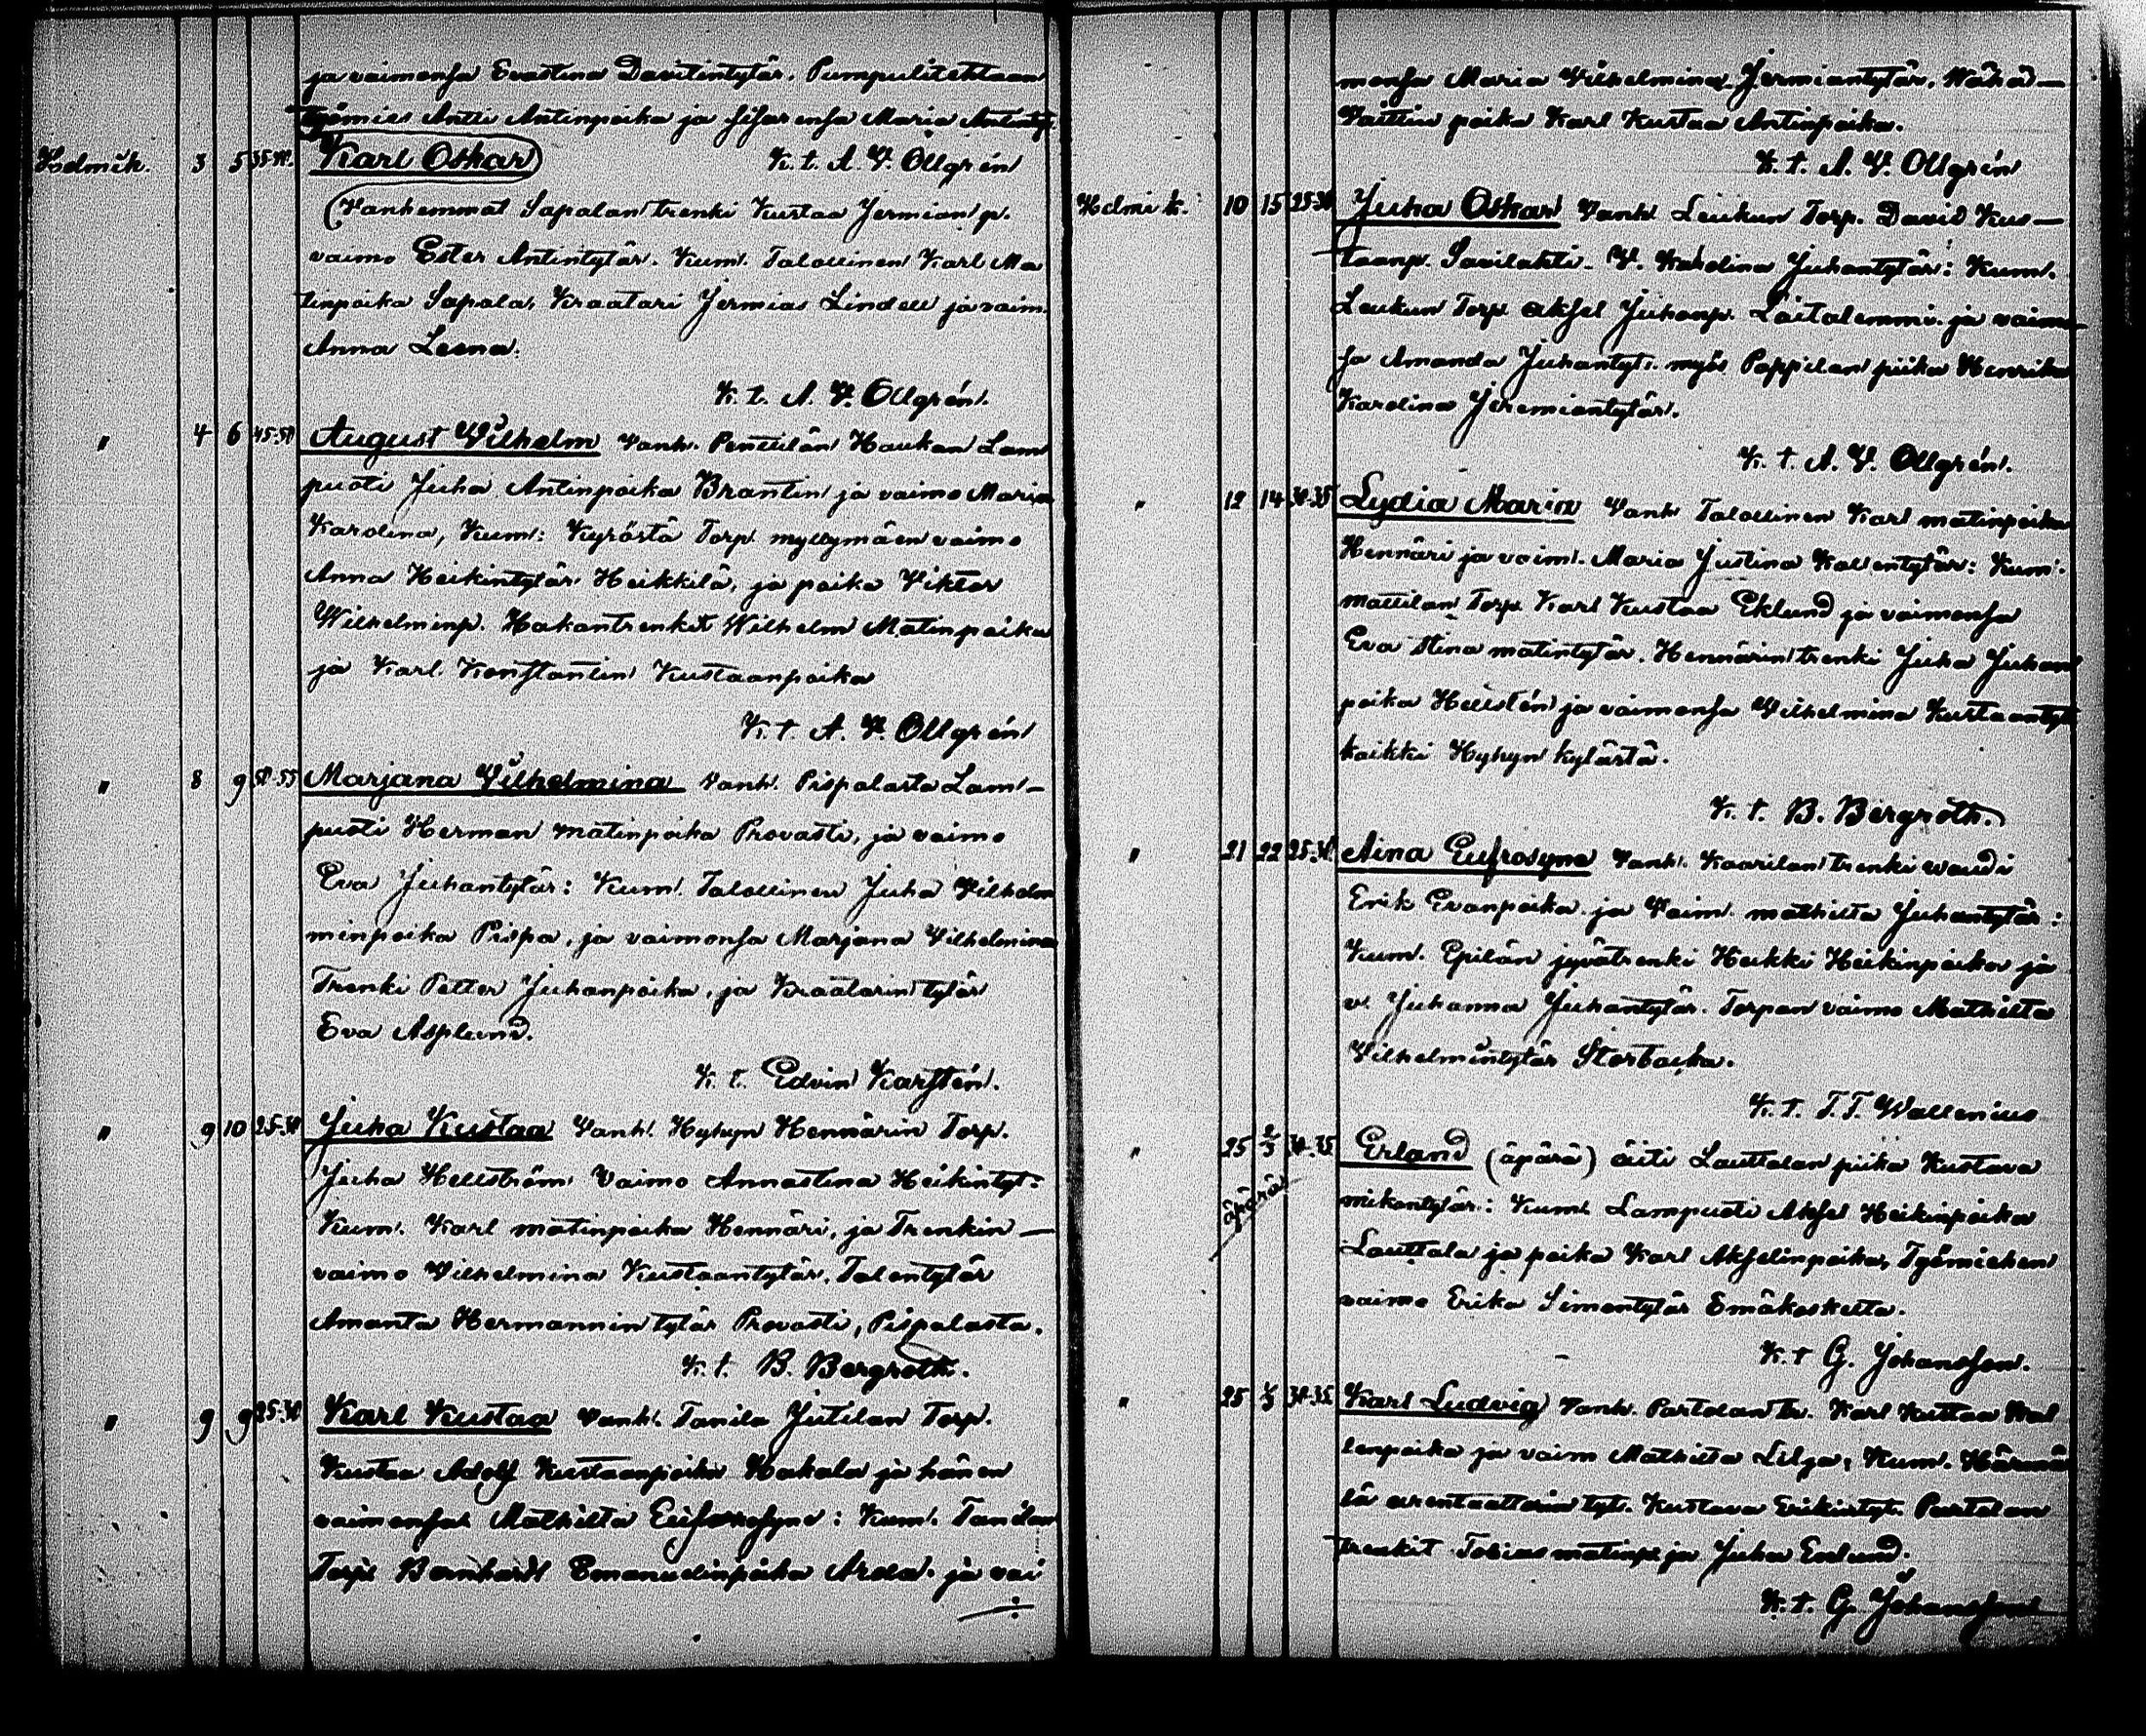 ja vaimonsa Evastina Davitintytär. Pumpulitehtaan
työmies Antti Antinpoika ja sisarensa Maria Antintyt.
Helmik. 3 5 35-40. Karl Oskar K. t. A. V. Ollgrén
(Vanhemmat Sapalan trenki Kustaa Jermian p.
vaimo Ester Antintytär. Kum. Talollinen Karl Ma
tinpoika Sapala, Kraatari Jermias Lindell ja vaim.
Anna Leena.
K. t. A. V. Ollgrén.
" 4 6 45-50 August Vilhelm Vanh. Penttilän Haukan Lam
puoti Juha Antinpoika Brantin ja vaimo Maria
Karolina, Kum: Kyröstä Torp. myllymäen vaimo
Anna Heikintytär Heikkilä, ja poika Viktor
Wilhelminp. Hakantrenkit Wilhelm Matinpoika
ja Karl Konstantin Kustaanpoika
K. t A. V. Ollgrén
" 8 9 50-55 Marjana Vilhelmina Vanh. Pispalasta Lam-
puoti Herman matinpoika Provasti, ja vaimo
Eva Juhantytär: Kum. Talollinen Juha Vilhelm
minpoika Pispa, ja vaimonsa Marjana Vilhelmina
Trenki Petter Juhanpoika, ja Kraatarin tytär
Eva Asplund.
K. t. Edvin Karstén.
" 9 10 25-30 Juha Kustaa Vanh. Hyhyn Hennärin Torp.
Juha Hellström Vaimo Annastina Heikintyt:
Kum. Karl matinpoika Hennäri, ja Trenkin -
vaimo Vilhelmina Kustaantytär. Talontytär
Amanta Hermannin tytär Provasti, Pispalasta.
K. t. B. Bergroth.
" 9 9 25-30 Karl Kustaa Vanh. Tanila Jutilan Torp.
Kustaa Adolf Kustaanpoika Hakala ja hänen
vaimonsa Mathilta Eufrosyne: Kum. Tanilan
Torp. Bernhard Emanuelinpoika Arola. ja vai
monsa Maria Vilhelmina Jermiantytär. Wähä-
Vaittin poika Karl Kustaa Antinpoika.
K. t. A. V. Ollgrén
Helmi k. 10 15 25-30 Juha Oskar Vanh Leukun Torp. David Kus-
taanp. Savilahti. V. Karolina Juhantytär: Kum.
Leukun Torp. Aksel Juhonp. Laitalemmi. ja vaimo
sa Amanda Juhantyt. myös Pappilan piika Henrika
Karolina Jeremiantytär.
K. t. A. V. Ollgrén.
" 12 14 30-35 Lydia Maria Vanh Talollinen Karl matinpoika
Hennäri ja vaim. Maria Justina Kallentytär: Kum.
mattilan Torp. Karl Kustaa Eklund ja vaimonsa
Eva Stina matintytär. Hennärin trenki Juha Juhan
poika Hellstén ja vaimonsa Vilhelmina Kustaantyt
kaikki Hyhyn kylästä.
K. t. B. Bergroth.
" 21 22 25-30 Aina Eufrosyne Vanh. Kaarilan trenki woudi
Erik Evanpoika ja Vaim. mathilta Juhantytär:
Kum. Epilän jyvätrenki Heikki Heikinpoika ja
v. Juhanna Juhantytär. Torpan vaimo Mathilta
Vilhelmintytär Storbacka.
K. t. T. T. Wallenius
" 25 2/3 30-35 Erland (äpärä) äiti Lauttalan piika Kustava
äpärä
mikontytär: Kum. Lampuoti Aksel Heikinpoika
Lauttala ja poika Karl Akselinpoika, Työmiehen
vaimo Erika Simontytär Emäkoskelta.
K. t G. Johansson.
" 25 1/3 30-35 Karl Ludvig Vanh. Partolan tr. Karl Kustaa Kal
lenpoika ja vaim Mathilta Lilja, Kum. Härmä
lä arentaattorin tyt. Kustava Erikintyt. Partolan
trenkit Tobias matinp. ja Juha Enlund.
K. t. G. Johansson